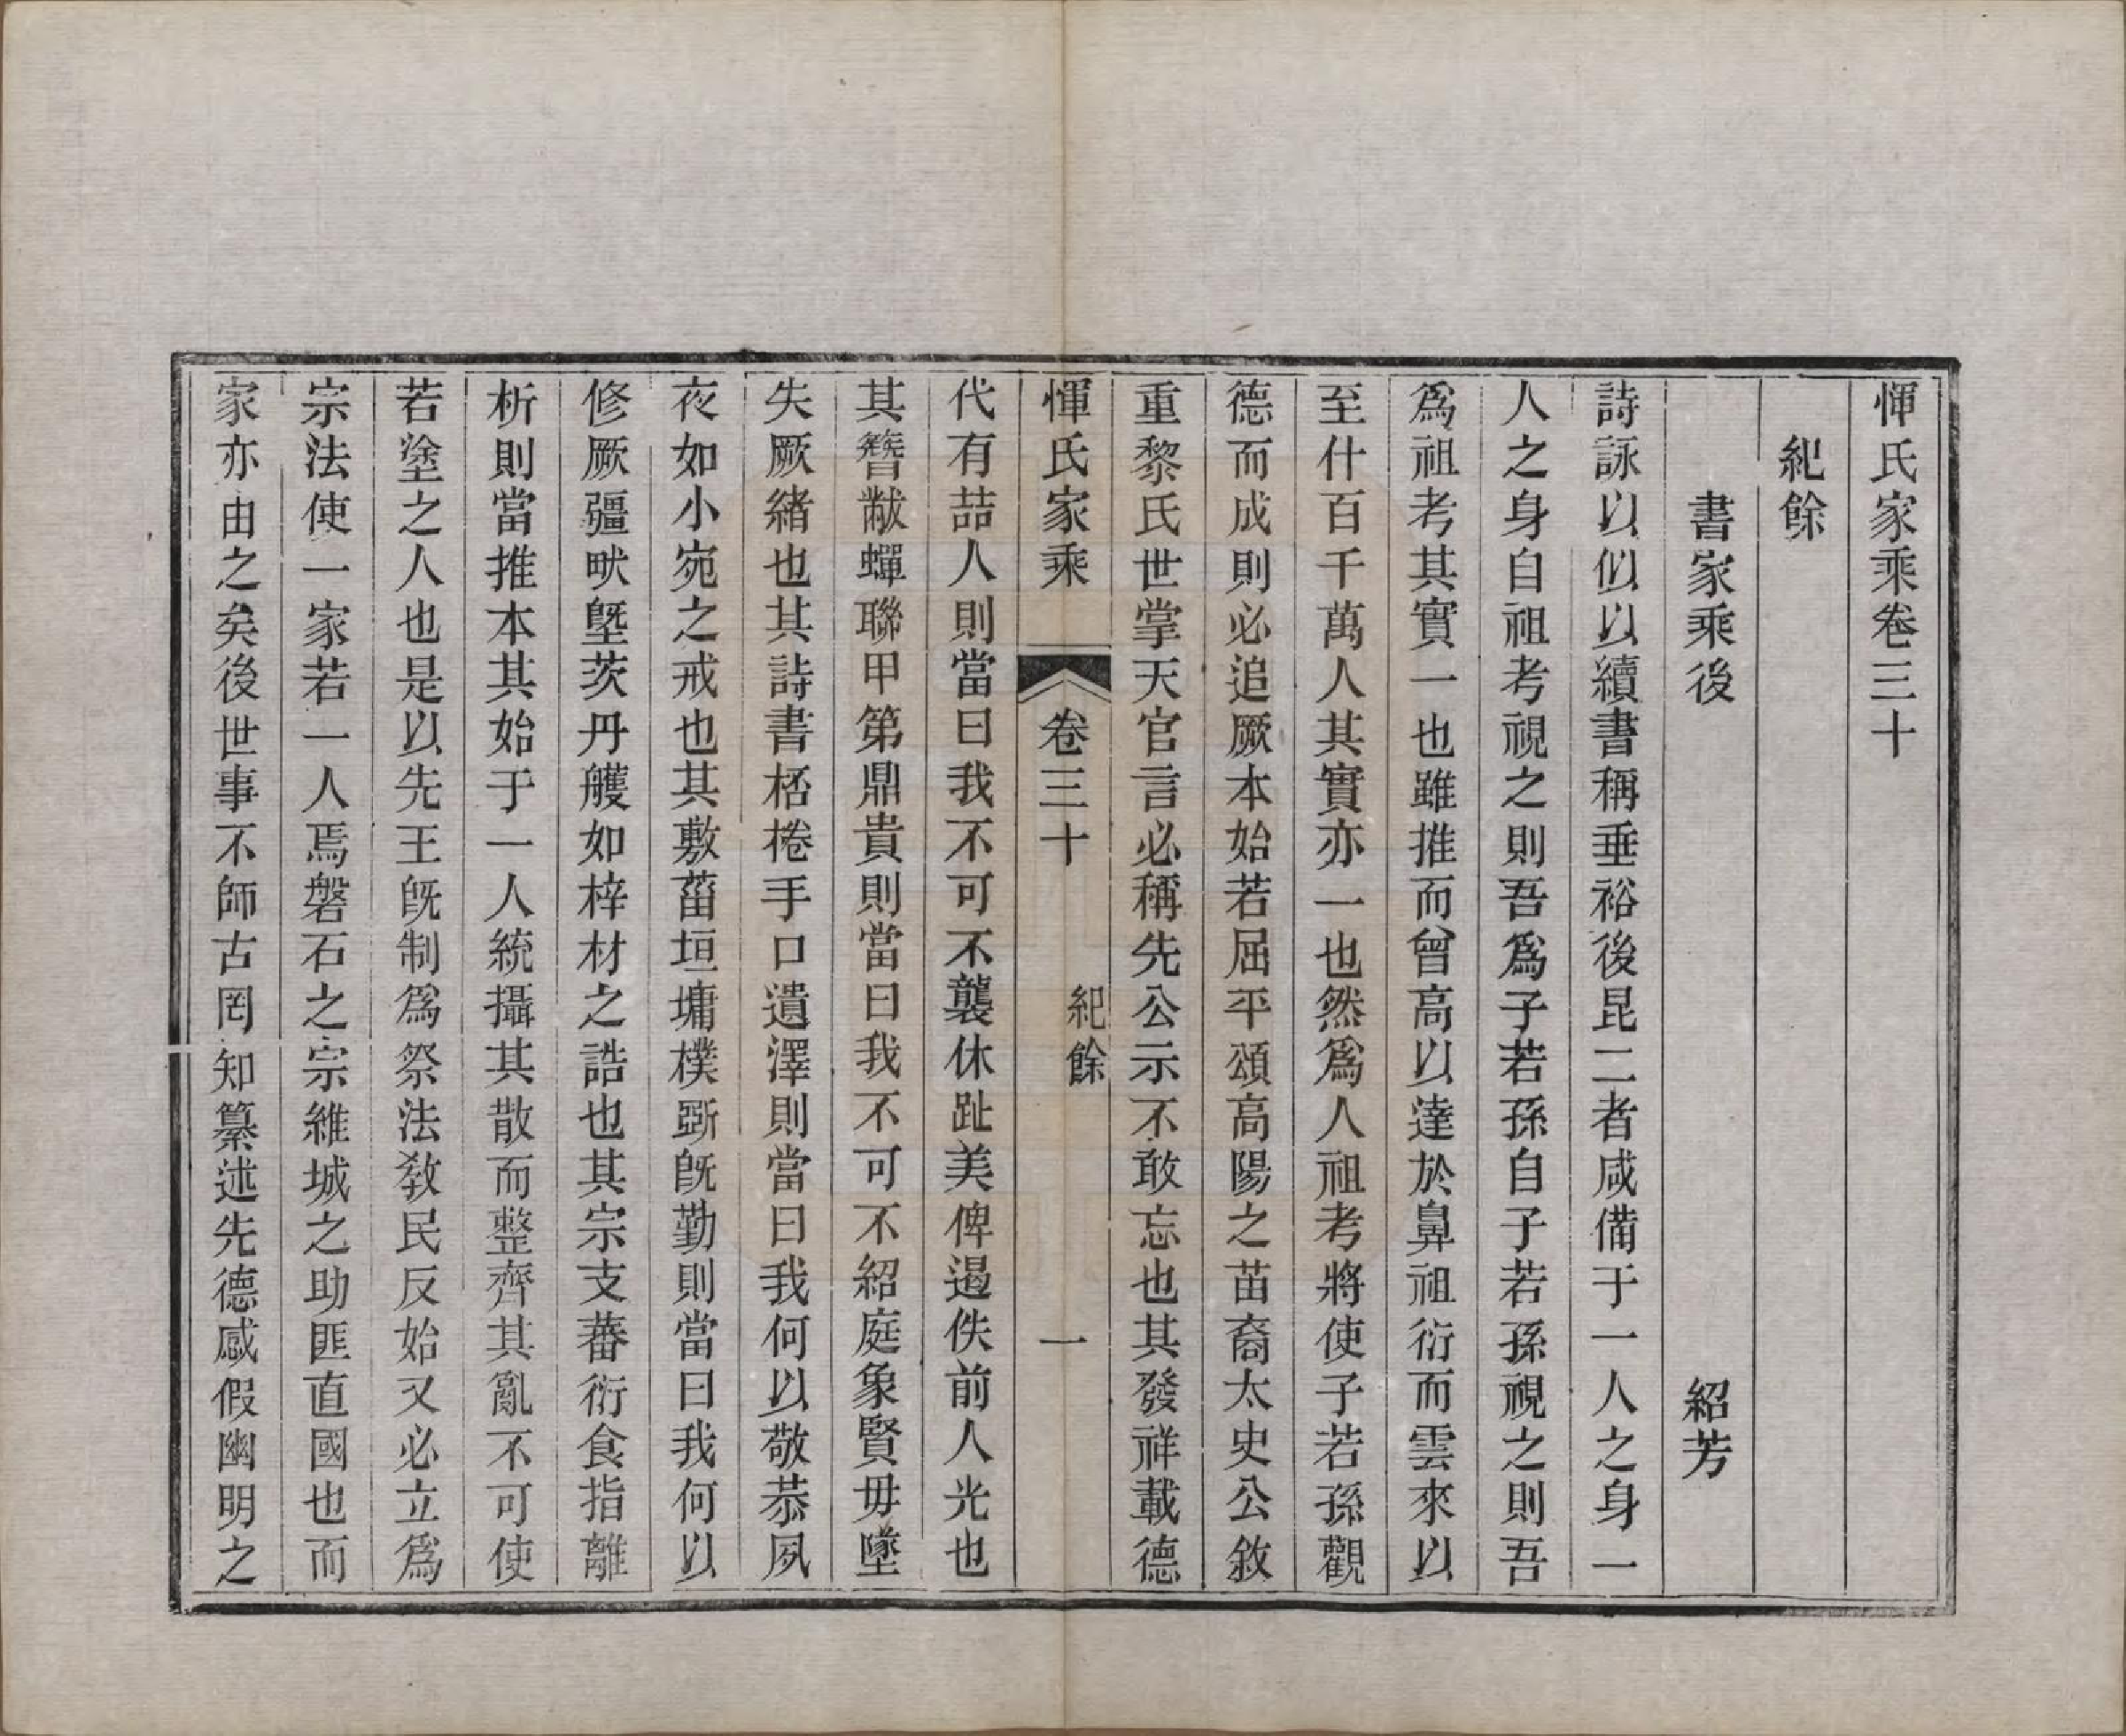 惲氏家乘卷三十
紀餘
書家乘後　紹芳
詩詠以似以續書稱垂裕後昆二者咸備于一人之身一
人之身自祖考視之則吾爲子若孫自子若孫視之則吾
爲祖考其實一也雖推而曾高以達於鼻祖衍而雲來以
至什百千萬人其實亦一也然爲人祖考將使子若孫觀
德而成則必追厥本始若屈平頌高陽之苗裔太史公敘
重黎氏世掌天官言必稱先公示不敢忘也其發祥載德
惲氏家乘　卷三十　紀餘　一
代有喆人則當曰我不可不襲休趾美俾遏佚前人光也
其簪黻蟬聯甲第鼎貴則當曰我不可不紹庭象賢毋墜
失厥緒也其詩書桮棬手口遺澤則當曰我何以敬恭夙
夜如小宛之戒也其敷菑垣墉樸斲旣勤則當曰我何以
修厥疆畎塈茨丹雘如梓材之誥也其宗支蕃衍食指離
析則當推本其始于一人統攝其散而整齊其亂不可使
若塗之人也是以先王旣制爲祭法敎民反始又必立爲
宗法使一家若一人焉磐石之宗維城之助匪直國也而
家亦由之矣後世事不師古罔知纂述先德感假幽明之